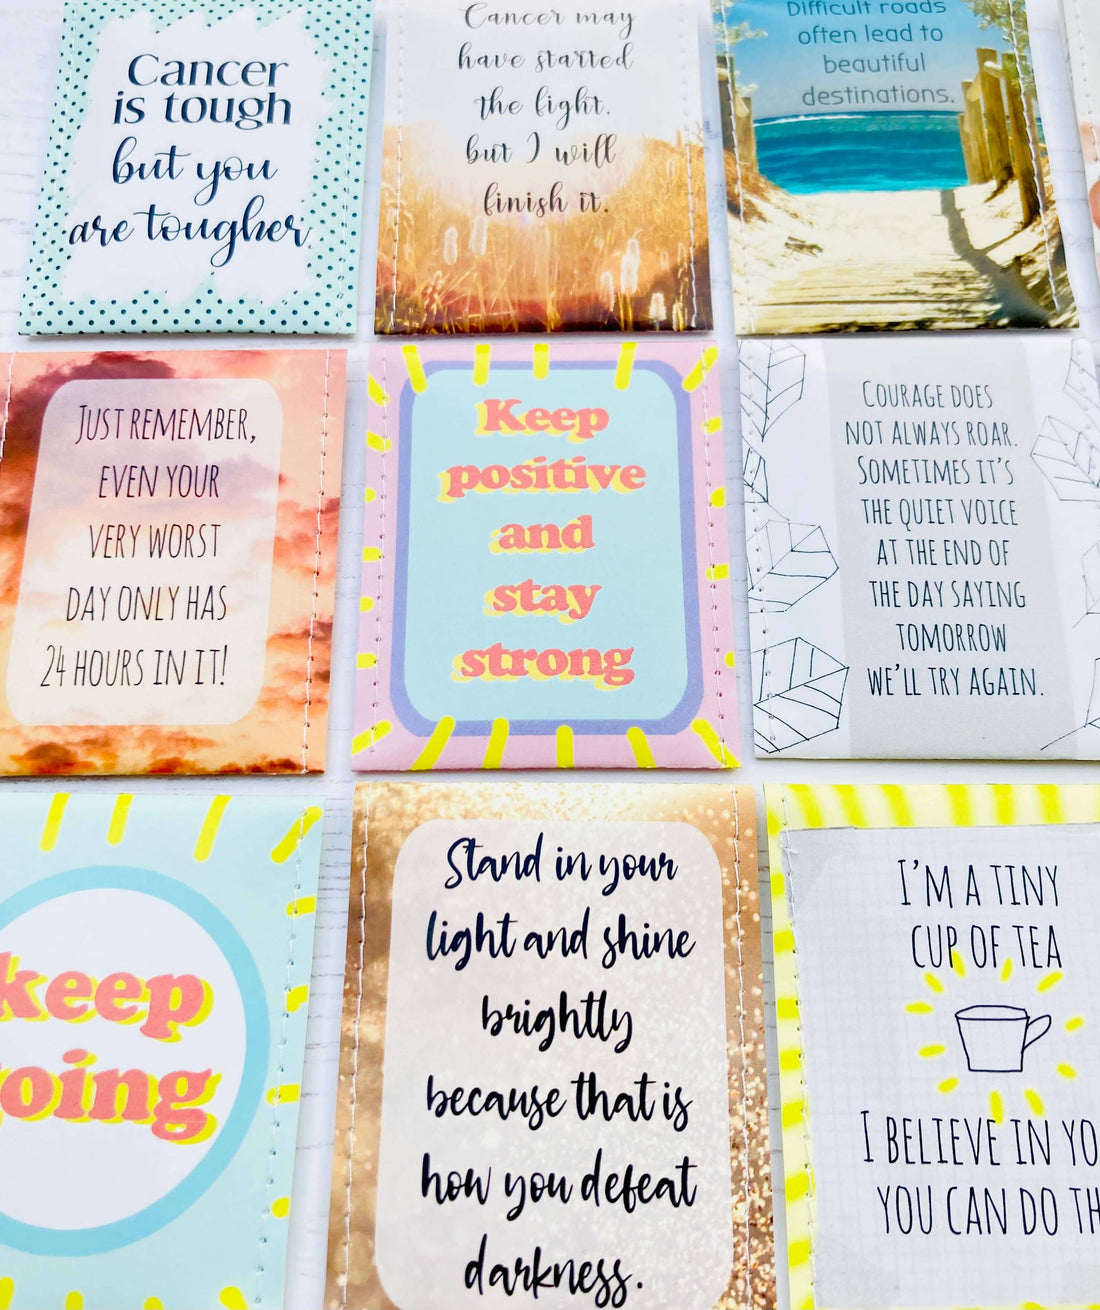 Cancer
is tough
but you
are tougher.
Cancer may
have started
the fight.
but I will
finish it.
Difficult roads
often lead to
beautiful
destinations.
JUST REMEMBER,
EVEN YOUR
VERY WORST
DAY ONLY HAS
24 HOURS IN IT!
Keep
positive
and
stay
strong
COURAGE DOES
NOT ALWAYS ROAR.
SOMETIMES IT'S
THE QUIET VOICE
AT THE END OF
THE DAY SAYING
TOMORROW
WE'LL TRY AGAIN.
keep
oing
Stand in your
light and shine
brightly
because that is
how you defeat
darkness.
I'M A TINY
CUP OF TEA
I BELIEVE IN YO
YOU CAN DO TH